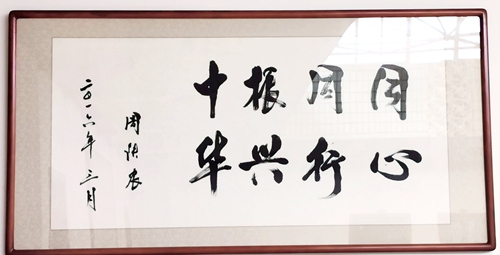 同心
同行
振兴
中华
周铁农
二〇一六年三月